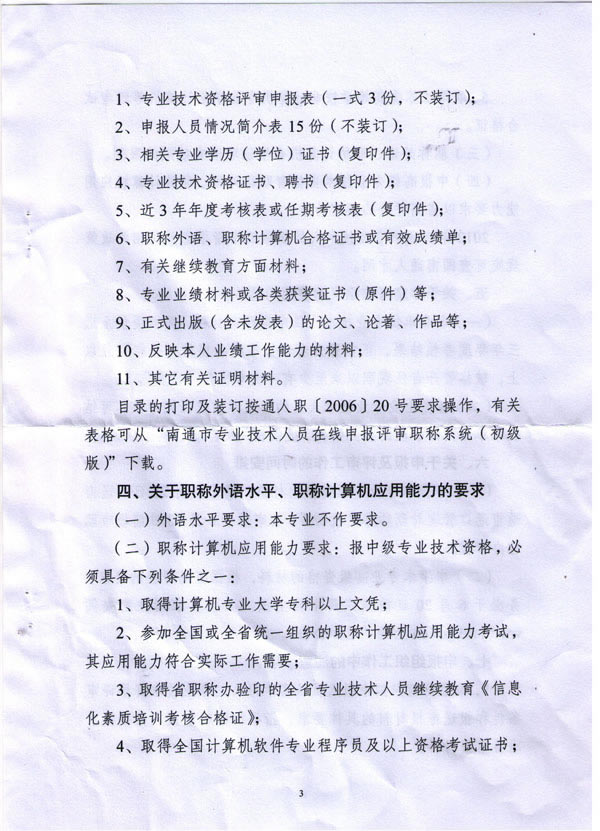 1、专业技术资格评审申报表（一式3份，不装订）；
2、申报人员情况简介表15份（不装订）；
3、相关专业学历（学位）证书（复印件）；
4、专业技术资格证书、聘书（复印件）；
5、近3年年度考核表或任期考核表（复印件）；
6、职称外语、职称计算机合格证书或有效成绩单；
7、有关继续教育方面材料；
8、专业业绩材料或各类获奖证书（原件）等；
9、正式出版（含未发表）的论文、论著、作品等；
10、反映本人业绩工作能力的材料；
11、其它有关证明材料。
目录的打印及装订按通人职〔2006〕20号要求操作，有关
表格可从“南通市专业技术人员在线申报评审职称系统（初级
版）”下载。
四、关于职称外语水平、职称计算机应用能力的要求
（一）外语水平要求：本专业不作要求。
（二）职称计算机应用能力要求：报中级专业技术资格，必
须具备下列条件之一：
1、取得计算机专业大学专科以上文凭；
2、参加全国或全省统一组织的职称计算机应用能力考试，
其应用能力符合实际工作需要；
3、取得省职称办验印的全省专业技术人员继续教育《信息
化素质培训考核合格证》；
4、取得全国计算机软件专业程序员及以上资格考试证书；
3